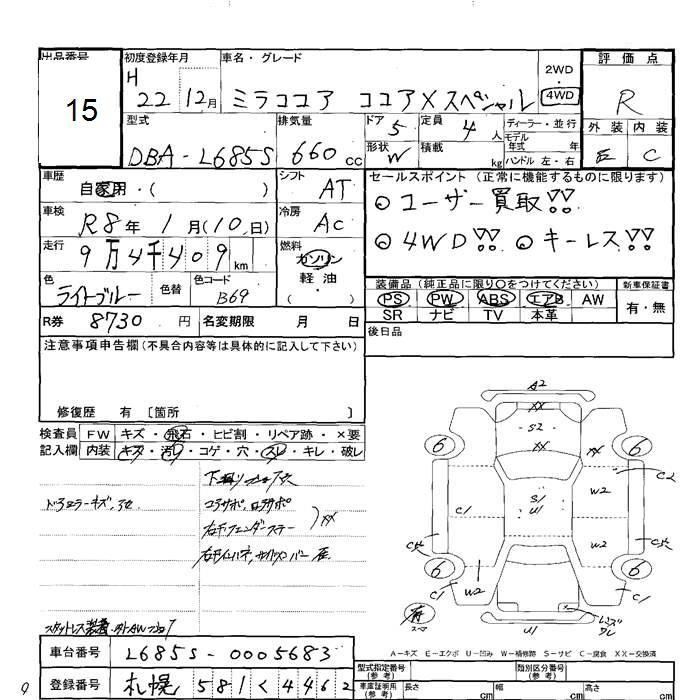 出品番号
15
初度登録年月
H
22 12月
車名・グレード
ミラココア ココアXスペシャル
2WD
・
4WD
評価点
R
外装 内装
C
型式
DBA-L685S
排気量
660 cc
ドア 5
定員 4 人
形状 W
積載 kg
ディーラー・並行
モデル
年式 年
ハンドル 左・右
車歴
自家用・( )
シフト
AT
セールスポイント (正常に機能するものに限ります)
◎ユーザー買取!!
◎4WD!! ◎キーレス!!
車検
R8年 1月(10日)
冷房
AC
走行
9万4千409 km
燃料
ガソリン
軽油
( )
色
ライトブルー
色替
色コード
B69
装備品(純正品に限り○をつけてください)
新車保証書
PS PW ABS エアB AW
SR ナビ TV 本革
有・無
R券 8730 円
名変期限 月 日
後日品
注意事項申告欄(不具合内容等は具体的に記入して下さい)
修復歴 有 〔箇所 〕
検査員
記入欄
FW キズ・飛石・ヒビ割・リペア跡・×要
内装 キズ・汚レ・コゲ・穴・スレ・キレ・破レ
コアサポ、ロアサポ
XX
A2
XX
S2
XX
XX
6
6
6
6
C2
W2
S/
U1
C1
W2
W2
C1
C1
U1
A-キズ E-エクボ U-凹み W-補修跡 S-サビ C-腐食 XX-交換済
車台番号
L685S-0005683
登録番号
札幌 581 く 4462
型式指定番号
(参考)
類別区分番号
(参考)
車庫証明用
(参考)
長さ cm
幅 cm
高さ cm